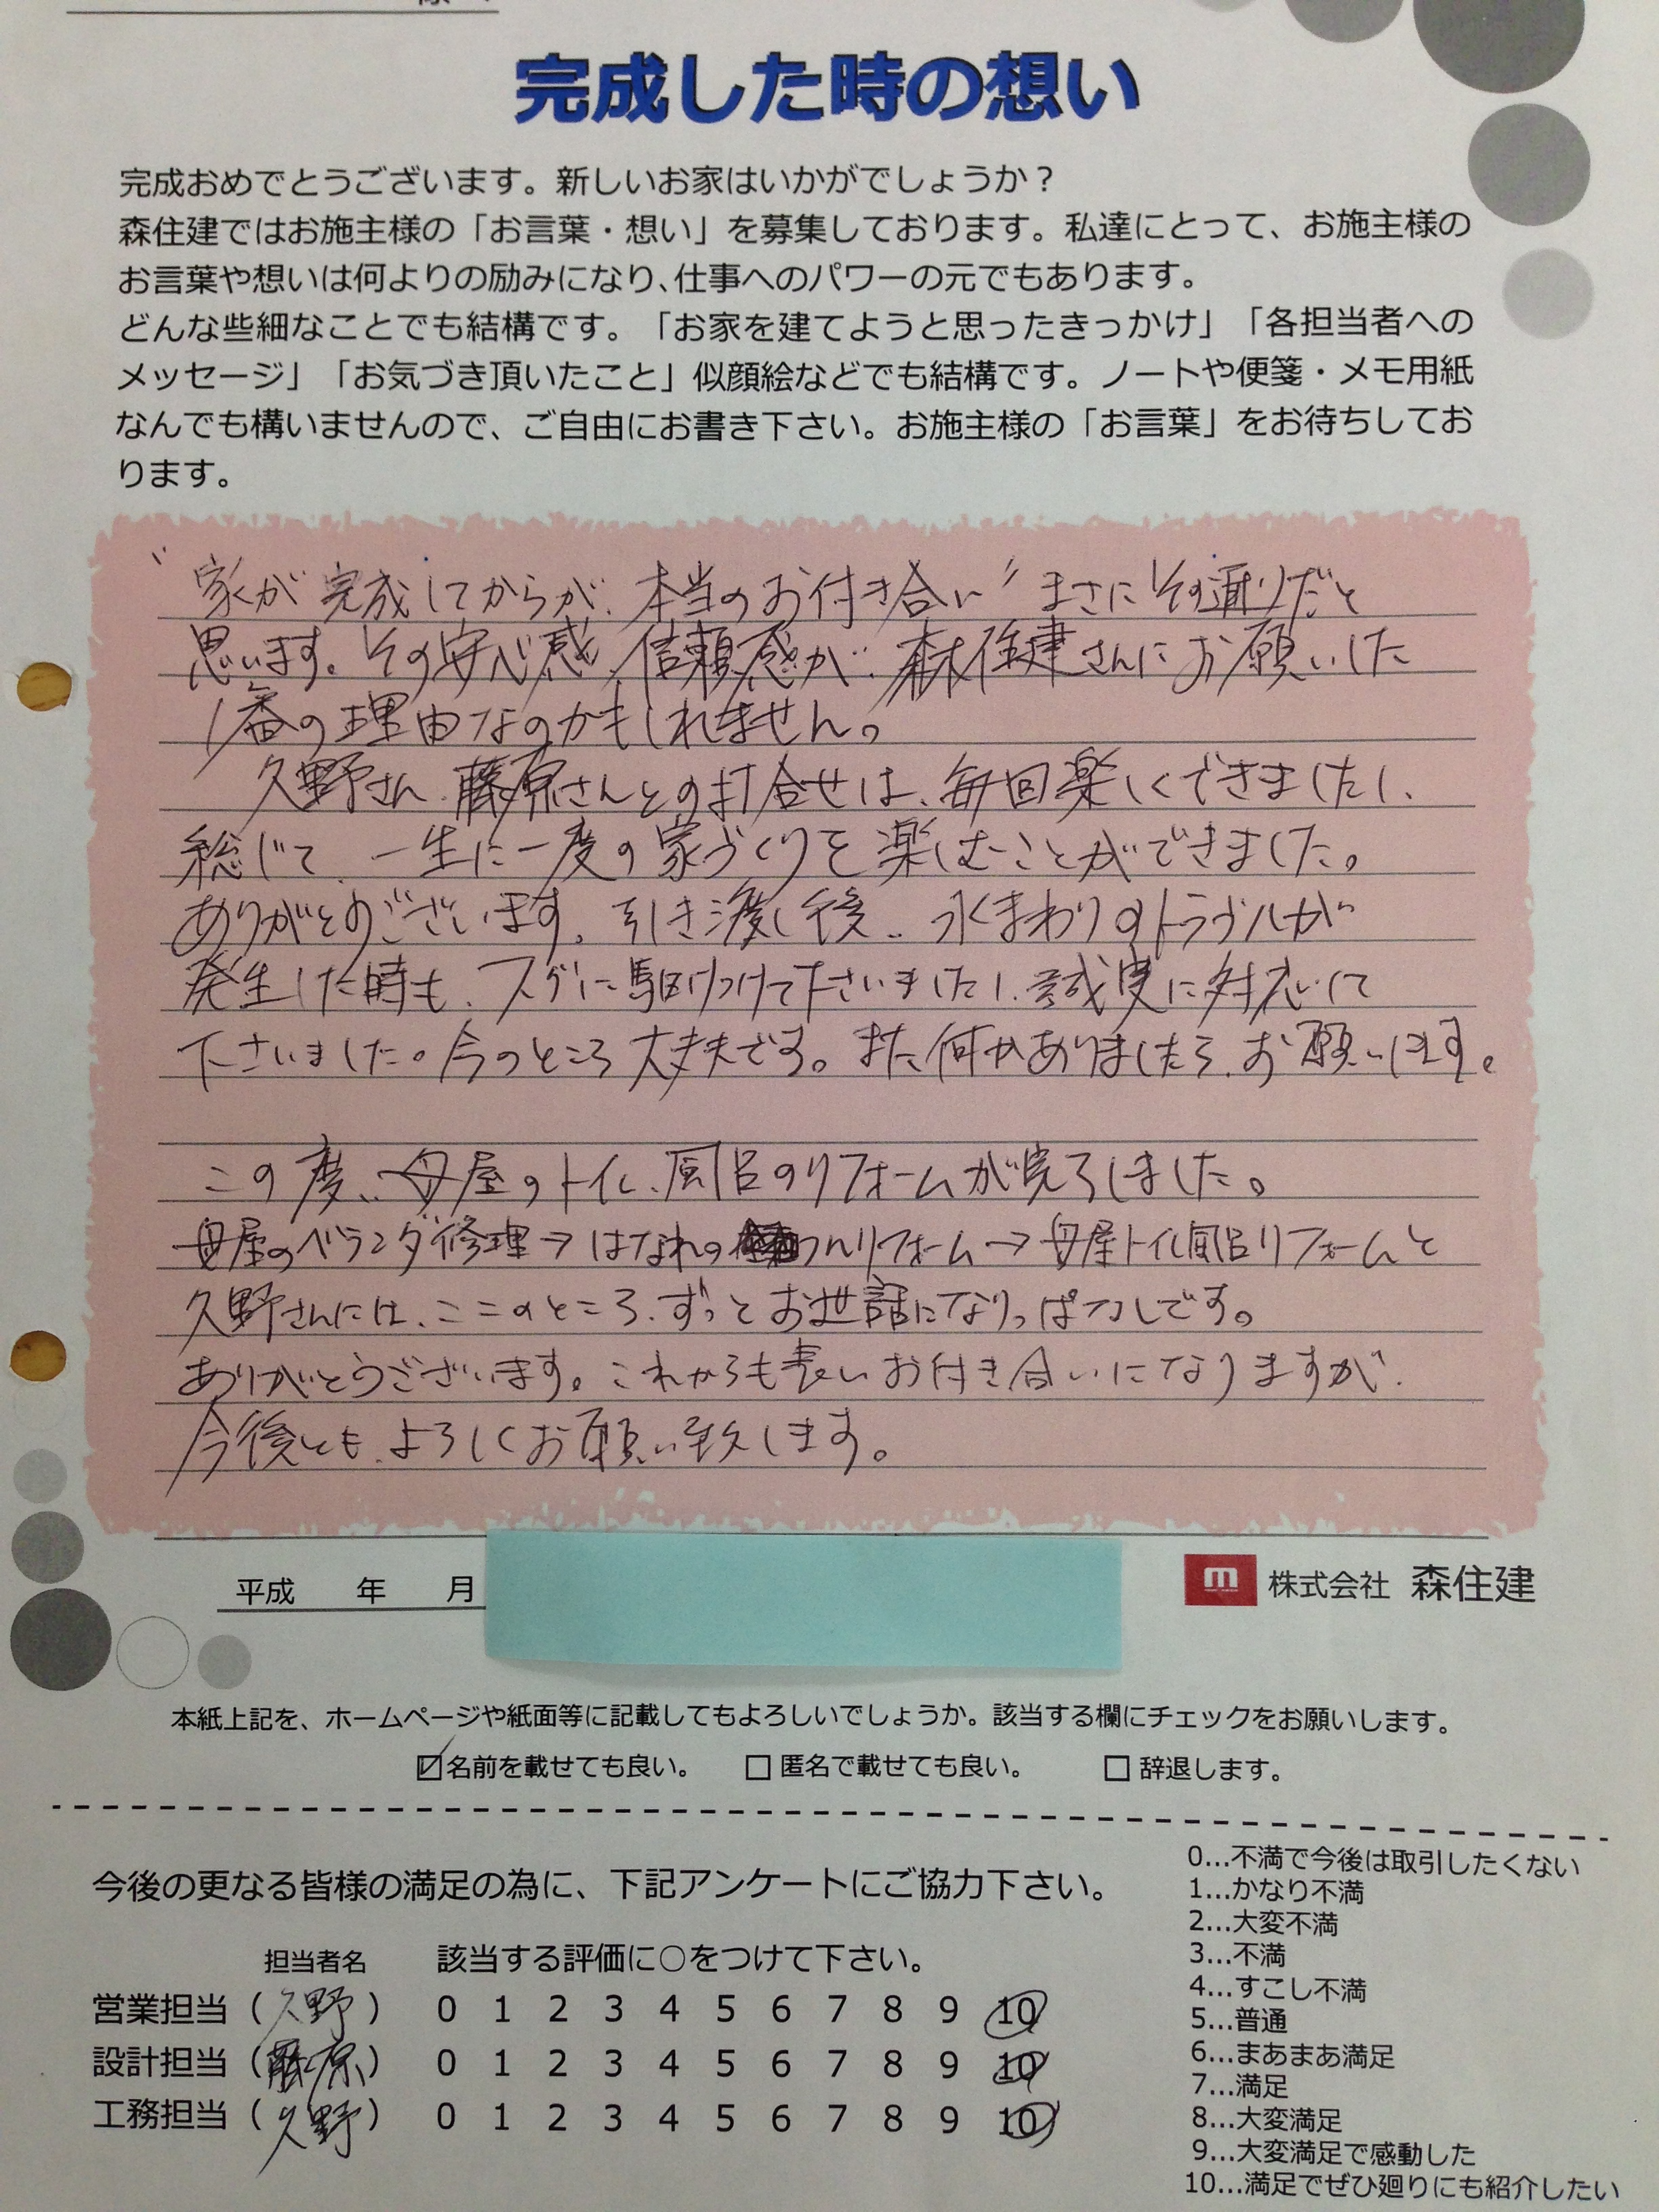 完成した時の想い
完成おめでとうございます。新しいお家はいかがでしょうか？
森住建ではお施主様の「お言葉・想い」を募集しております。私達にとって、お施主様の
お言葉や想いは何よりの励みになり､仕事へのパワーの元でもあります。
どんな些細なことでも結構です。「お家を建てようと思ったきっかけ」「各担当者への
メッセージ」「お気づき頂いたこと」似顔絵などでも結構です。ノートや便箋・メモ用紙
なんでも構いませんので、ご自由にお書き下さい。お施主様の「お言葉」をお待ちしてお
ります。
"家が完成してからが、本当のお付き合い" まさにその通りだと
思います。その安心感、信頼感が、森住建さんにお願いした
1番の理由なのかもしれません。
久野さん、藤原さんとの打合せは、毎回楽しくできましたし、
総じて、一生に一度の家づくりを楽しむことができました。
ありがとうございます。引き渡し後、水まわりのトラブルが
発生した時も、スグに駆けつけて下さいましたし、誠実に対応して
下さいました。今のところ大丈夫です。また何かありましたら、お願いします。
この度、母屋のトイレ、風呂のリフォームが完了しました。
母屋のベランダ修理→はなれのリフォーム→母屋トイレ風呂リフォームと
久野さんには、ここのところ、ずっとお世話になりっぱなしです。
ありがとうございます。これからも長いお付き合いになりますが、
今後とも、よろしくお願い致します。
平成 年 月
m 株式会社 森住建
本紙上記を、ホームページや紙面等に記載してもよろしいでしょうか。該当する欄にチェックをお願いします。
☑名前を載せても良い。 □匿名で載せても良い。 □辞退します。
今後の更なる皆様の満足の為に、下記アンケートにご協力下さい。
担当者名 該当する評価に○をつけて下さい。
営業担当（久野） 0 1 2 3 4 5 6 7 8 9 10
設計担当（藤原） 0 1 2 3 4 5 6 7 8 9 10
工務担当（久野） 0 1 2 3 4 5 6 7 8 9 10
0...不満で今後は取引したくない
1...かなり不満
2...大変不満
3...不満
4...すこし不満
5...普通
6...まあまあ満足
7...満足
8...大変満足
9...大変満足で感動した
10...満足でぜひ廻りにも紹介したい